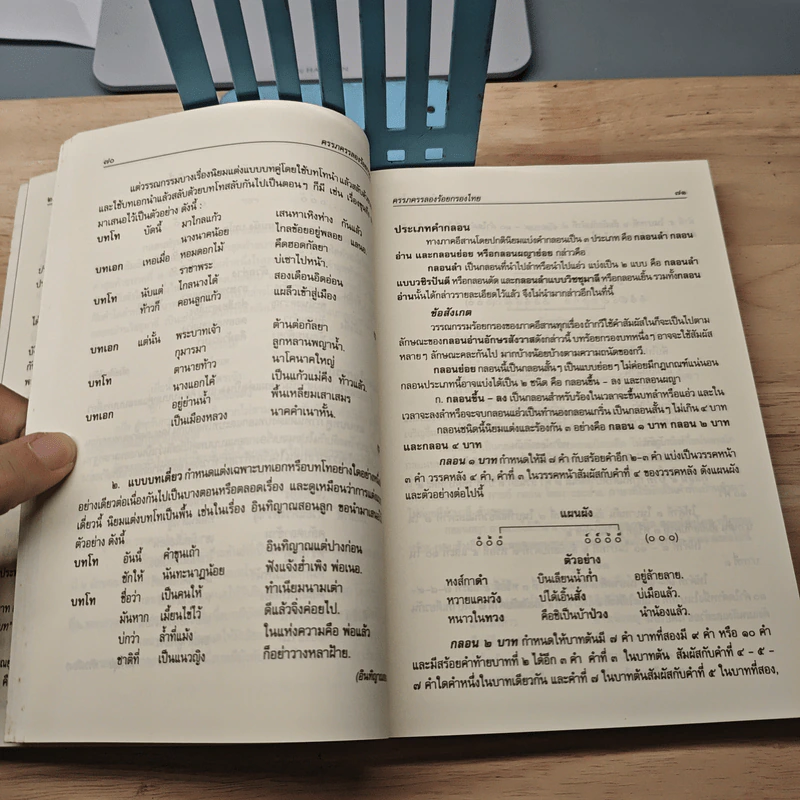 ๗๐
แต่วรรณกรรมบางเรื่องนิยมแต่งแบบบทคู่โดยใช้บทโทนำ แล้วสลับด้วย
และใช้บทเอกนำแล้วสลับด้วยบทโทสลับกันไปเป็นตอนๆ ก็มี เช่น
มาเสนอไว้เป็นตัวอย่าง ดังนี้ :
บทโท บัดนี้ มาไกลแก้ว เสนหาเหิงห่าง กันแล้ว
นางนาคน้อย ใกล้ช้อยอยู่พลอย
บทเอก เหอเมื่อ หอมดอกไม้ คึดฮอดกัลยา
ราชาพระ บ่เซาไปหน้า.
บทโท นับแต่ ไกลนางได้ สองเดือนอิดอ่อน
ท้าวก็ คอนลูกแก้ว แผล็วเข้าสู่เมือง
บทเอก แต่นั้น พระบาทเจ้า ต้านต่อกัลยา
กุมารมา ลูกหลานพญาน้ำ.
บทโท ตานายท้าว นาโคนาคใหญ่
นางแอกไค้ เป็นแก้วแม่คีง ท้าวแล้ว.
บทเอก อยู่ย่านน้ำ พื้นเหลี่ยมเสาเสมร
เป็นเมืองหลวง นาคคำเนาหั้น.
๒. แบบบทเดี่ยว กำหนดแต่งเฉพาะบทเอกหรือบทโทอย่างใดอย่างหนึ่ง
อย่างเดียวต่อเนื่องกันไปเป็นบางตอนหรือตลอดเรื่อง และดูเหมือนว่าการแต่ง
เดี่ยวนี้ นิยมแต่งบทโทเป็นพื้น เช่นในเรื่อง อินทิญาณสอนลูก ขอนำมาเสนอ
ตัวอย่าง ดังนี้
บทโท อันนี้ คำขุนเถ้า อินทิญาณแต่ปางก่อน
ชักให้ นันทะนาฏน้อย ฟังแจ้งฮ่ำเพิง พ่อเนอ.
บทโท ชื่อว่า เป็นคนให้ ทำเนียมนามเต่า
มันหาก เมี้ยนไข่ไว้ ดีแล้วจึ่งค่อยไป.
บ่กว่า ล้ำที่แม้ง ในแห่งความคือ พ่อแล้ว
ชาติที่ เป็นแนวญิง ก็อย่าวางหลาฝ้าย.
ครรภครรลองร้อยกรองไทย
๗๑
ประเภทคำกลอน
ทางภาคอีสานโดยปกตินิยมแบ่งคำกลอนเป็น ๓ ประเภท คือ กลอนลำ กลอน
อ่าน และกลอนย่อย หรือกลอนผญาย่อย กล่าวคือ
กลอนลำ เป็นกลอนที่นำไปลำหรือนำไปแอ่ว แบ่งเป็น ๒ แบบ คือ กลอนลำ
แบบวชิรปันติ หรือกลอนตัด และกลอนลำแบบวิชชุมาลี หรือกลอนเย็น รวมทั้งกลอน
อ่านนั้นได้กล่าวรายละเอียดไว้แล้ว จึงไม่นำมากล่าวอีกในที่นี้
ข้อสังเกต
วรรณกรรมร้อยกรองของภาคอีสานทุกเรื่องถ้ากวีใช้คำสัมผัสในก็จะเป็นไปตาม
ลักษณะของกลอนอ่านอักษรสังวาสดังกล่าวนี้ บทร้อยกรองบทหนึ่งๆ อาจจะใช้สัมผัส
หลายๆ ลักษณะคละกันไป มากบ้างน้อยบ้างตามความถนัดของกวี.
กลอนย่อย กลอนนี้เป็นกลอนสั้นๆ เป็นแบบย่อยๆ ไม่ค่อยมีกฎเกณฑ์แน่นอน
กลอนประเภทนี้อาจแบ่งได้เป็น ๒ ชนิด คือ กลอนขึ้น – ลง และกลอนผญา
ก. กลอนขึ้น – ลง เป็นกลอนสำหรับร้องในเวลาจะขึ้นบทลำหรือแอ่ว และใน
เวลาจะลงลำหรือจะจบกลอนแอ่วเป็นทำนองกลอนเกริ่น เป็นกลอนสั้นๆ ไม่เกิน ๔ บาท
กลอนชนิดนี้นิยมแต่งและร้องกัน ๓ อย่างคือ กลอน ๑ บาท กลอน ๒ บาท
และกลอน ๔ บาท
กลอน ๑ บาท กำหนดให้มี ๗ คำ กับสร้อยคำอีก ๒–๓ คำ แบ่งเป็นวรรคหน้า
๓ คำ วรรคหลัง ๔ คำ, คำที่ ๓ ในวรรคหน้าสัมผัสกับคำที่ ๔ ของวรรคหลัง ดังแผนผัง
และตัวอย่างต่อไปนี้
แผนผัง
ตัวอย่าง
หงส์กาดำ บินเลียนน้ำก่ำ อยู่ล้ายลาย.
หวายแคมวัง บ่ได้เอิ้นสั่ง บ่เมือแล้ว.
หนาวในทวง คือซิเป็นบ้าป่วง นำน้องแล้ว.
กลอน ๒ บาท กำหนดให้บาทต้นมี ๗ คำ บาทที่สองมี ๙ คำ หรือ ๑๐ คำ
และมีสร้อยคำท้ายบาทที่ ๒ ได้อีก ๓ คำ คำที่ ๓ ในบาทต้น สัมผัสกับคำที่ ๔ – ๕ –
๗ คำใดคำหนึ่งในบาทเดียวกัน และคำที่ ๗ ในบาทต้นสัมผัสกับคำที่ ๕ ในบาทที่สอง,